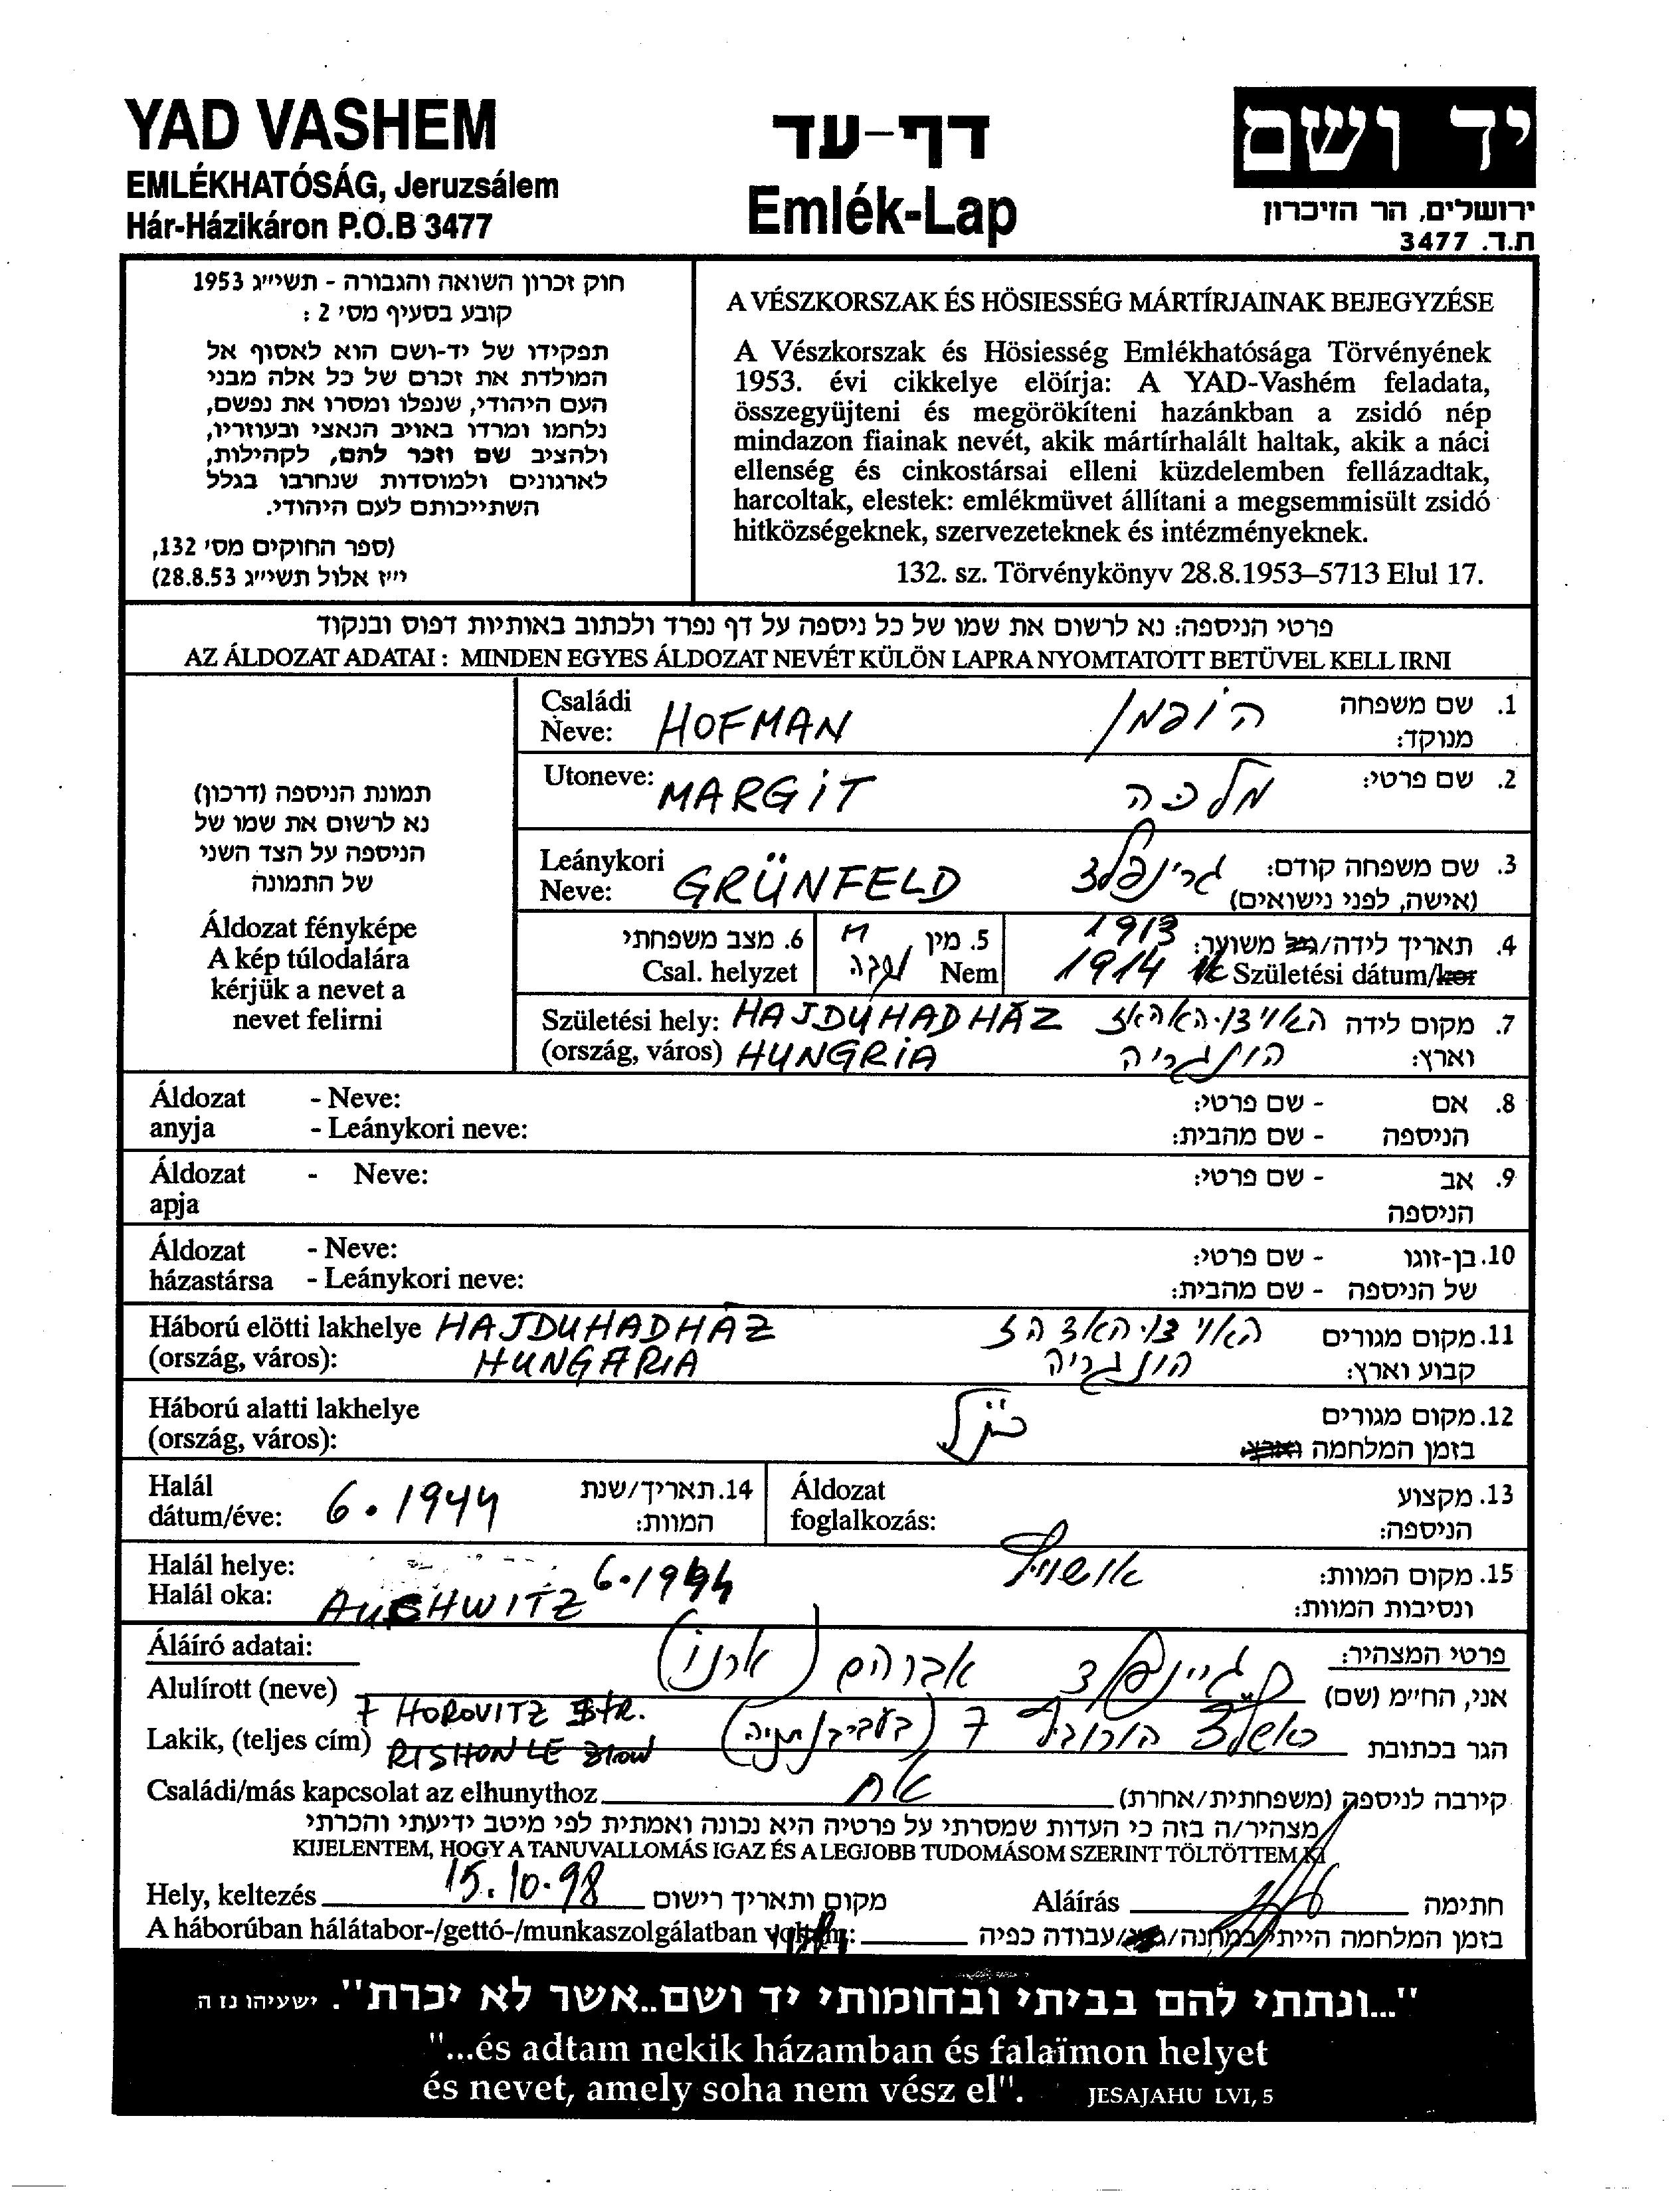 YAD VASHEM
EMLÉKHATÓSÁG, Jeruzsálem
Hár-Házikáron P.O.B 3477
דף-עד
Emlék-Lap
יד ושם
ירושלים, הר הזיכרון
ת.ד. 3477
חוק זכרון השואה והגבורה - תשי״ג 1953
קובע בסעיף מס׳ 2 :
תפקידו של יד-ושם הוא לאסוף אל
המולדת את זכרם של כל אלה מבני
העם היהודי, שנפלו ומסרו את נפשם,
נלחמו ומרדו באויב הנאצי ובעוזריו,
ולהציב שם וזכר להם, לקהילות,
לארגונים ולמוסדות שנחרבו בגלל
השתייכותם לעם היהודי.
(ספר החוקים מס׳ 132,
י״ז אלול תשי״ג 28.8.53)
A VÉSZKORSZAK ÉS HÖSIESSÉG MÁRTÍRJAINAK BEJEGYZÉSE
A Vészkorszak és Hösiesség Emlékhatósága Törvényének
1953. évi cikkelye elöírja: A YAD-Vashém feladata,
összegyüjteni és megörökíteni hazánkban a zsidó nép
mindazon fiainak nevét, akik mártírhalált haltak, akik a náci
ellenség és cinkostársai elleni küzdelemben fellázadtak,
harcoltak, elestek: emlékmüvet állítani a megsemmisült zsidó
hitközségeknek, szervezeteknek és intézményeknek.
132. sz. Törvénykönyv 28.8.1953–5713 Elul 17.
פרטי הניספה: נא לרשום את שמו של כל ניספה על דף נפרד ולכתוב באותיות דפוס ובנקוד
AZ ÁLDOZAT ADATAI : MINDEN EGYES ÁLDOZAT NEVÉT KÜLÖN LAPRA NYOMTATOTT BETÜVEL KELL IRNI
תמונת הניספה (דרכון)
נא לרשום את שמו של
הניספה על הצד השני
של התמונה
Áldozat fényképe
A kép túlodalára
kérjük a nevet a
nevet felirni
Családi Neve: HOFMAN הופמן 1. שם משפחה מנוקד:
Utoneve: MARGIT מלכה 2. שם פרטי:
Leánykori Neve: GRÜNFELD גרינפלד 3. שם משפחה קודם: (אישה, לפני נישואים)
6. מצב משפחתי
Csal. helyzet
5. מין
Nem
נקבה
1913 4. תאריך לידה/גיל משוער:
1914 Születési dátum/kor
Születési hely: HAJDUHADHÁZ האוידו-האדהאז 7. מקום לידה
(ország, város) HUNGRIA הונגריה וארץ:
Áldozat - Neve: - שם פרטי: 8. אם
anyja - Leánykori neve: - שם מהבית: הניספה
Áldozat - Neve: - שם פרטי: 9. אב
apja הניספה
Áldozat - Neve: - שם פרטי: 10. בן-זוגו
házastársa - Leánykori neve: - שם מהבית: של הניספה
Háború elötti lakhelye HAJDUHADHAZ 11. מקום מגורים
(ország, város): HUNGARIA הונגריה קבוע וארץ:
Háború alatti lakhelye כנ״ל 12. מקום מגורים
(ország, város): בזמן המלחמה וארץ:
Halál dátum/éve: 6.1944 14. תאריך/שנת המוות:
Áldozat foglalkozás: 13. מקצוע הניספה:
Halál helye: 6.1944 אושויץ 15. מקום המוות:
Halál oka: AUSHWITZ ונסיבות המוות:
Áláíró adatai: פרטי המצהיר:
Alulírott (neve) גרינפלד אברהם (ארנו) אני, החי״מ (שם)
7 HOROVITZ STR.
Lakik, (teljes cím) RISHON LE ZION ראשל״צ הורוביץ 7 הגר בכתובת
Családi/más kapcsolat az elhunythoz אח קירבה לניספה (משפחתית/אחרת)
מצהיר/ה בזה כי העדות שמסרתי על פרטיה היא נכונה ואמתית לפי מיטב ידיעתי והכרתי
KIJELENTEM, HOGY A TANUVALLOMÁS IGAZ ÉS A LEGJOBB TUDOMÁSOM SZERINT TÖLTÖTTEM KI
Hely, keltezés 15.10.98 מקום ותאריך רישום Aláírás חתימה
A háborúban hálátabor-/gettó-/munkaszolgálatban voltam: בזמן המלחמה הייתי במחנה/גטו/עבודה כפיה
"...ונתתי להם בביתי ובחומותי יד ושם..אשר לא יכרת". ישעיהו נז ה
"...és adtam nekik házamban és falaïmon helyet
és nevet, amely soha nem vész el". JESAJAHU LVI, 5